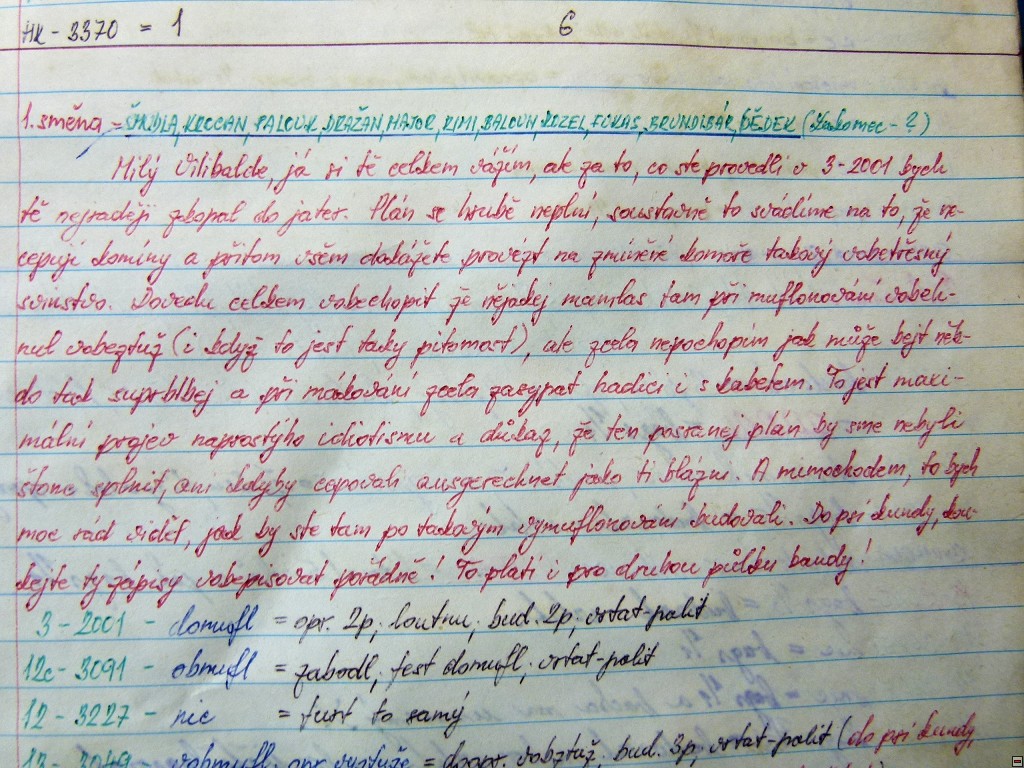 HK - 3370 = 1 6
1. směna = ŠMUDLA, KROCAN, PALOUK, DRAŽAN, MAJOR, KIMI, BALOUN, KOZEL, FUKAS, BRUNDIBÁR, DĚDEK ( - ?)
Milý Vilibalde, já si tě celkem vážím, ale za to, co ste provedli v 3-2001 bych
tě nejraději zkopal do jater. Plán se hrubě neplní, soustavně to svádíme na to, že ne-
cepuji komíny a přitom všem dokážete provézt na zmíněné komoře takový vobětřesný
svinstvo. Dovedu celkem vobechopit že nějakej mamlas tam při muflonování vobeh-
nul vobeztuž (i když to jest taky pitomost), ale zcela nepochopím jak může bejt něk-
do tak suprblbej a při mákování zcela zasypat hadici i s kabelem. To jest maxi-
mální projev naprostýho idiotismu a důkaz, že ten posranej plán by sme nebyli
štonc splnit, ani kdyby cepovali ausgerechnet jako ti blázni. A mimochodem, to bych
moc rád viděl, jak by ste tam po takovým vymuflonování budovali. Do psí kundy, kou-
kejte ty zápisy vobepisovat pořádně! To platí i pro druhou půlku bandy!
3 - 2001 - domufl = opr. 2p; loutnu; bud. 2p; vrtat-palit
12c - 3091 - obmufl = zabodl; fest domufl; vrtat-palit
12 - 3227 - nic = furt to samý
12 - 3049 - vobmufl; opr. = doopr. vobztuž; bud. 3p; vrtat-palit (do psí kundy,